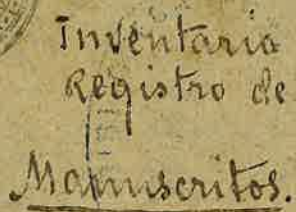 Inventario
Registro de
Manuscritos.